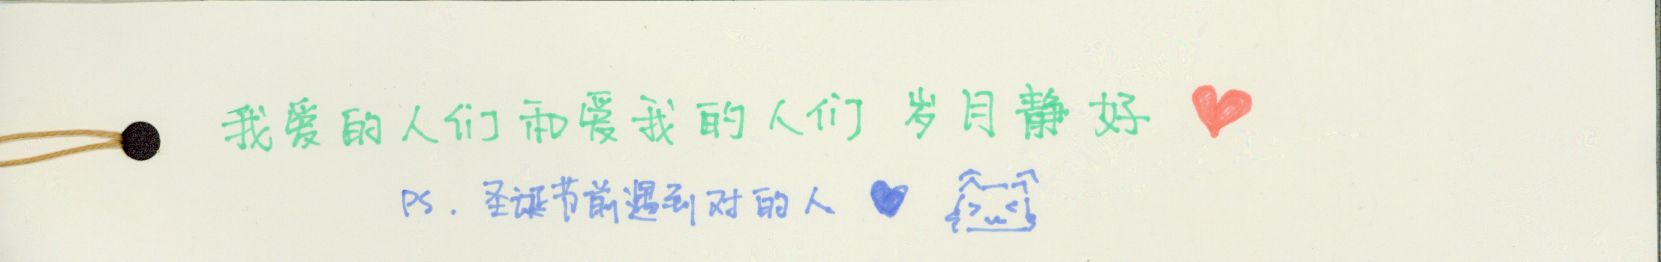 我爱的人们和爱我的人们 岁月静好
PS. 圣诞节前遇到对的人